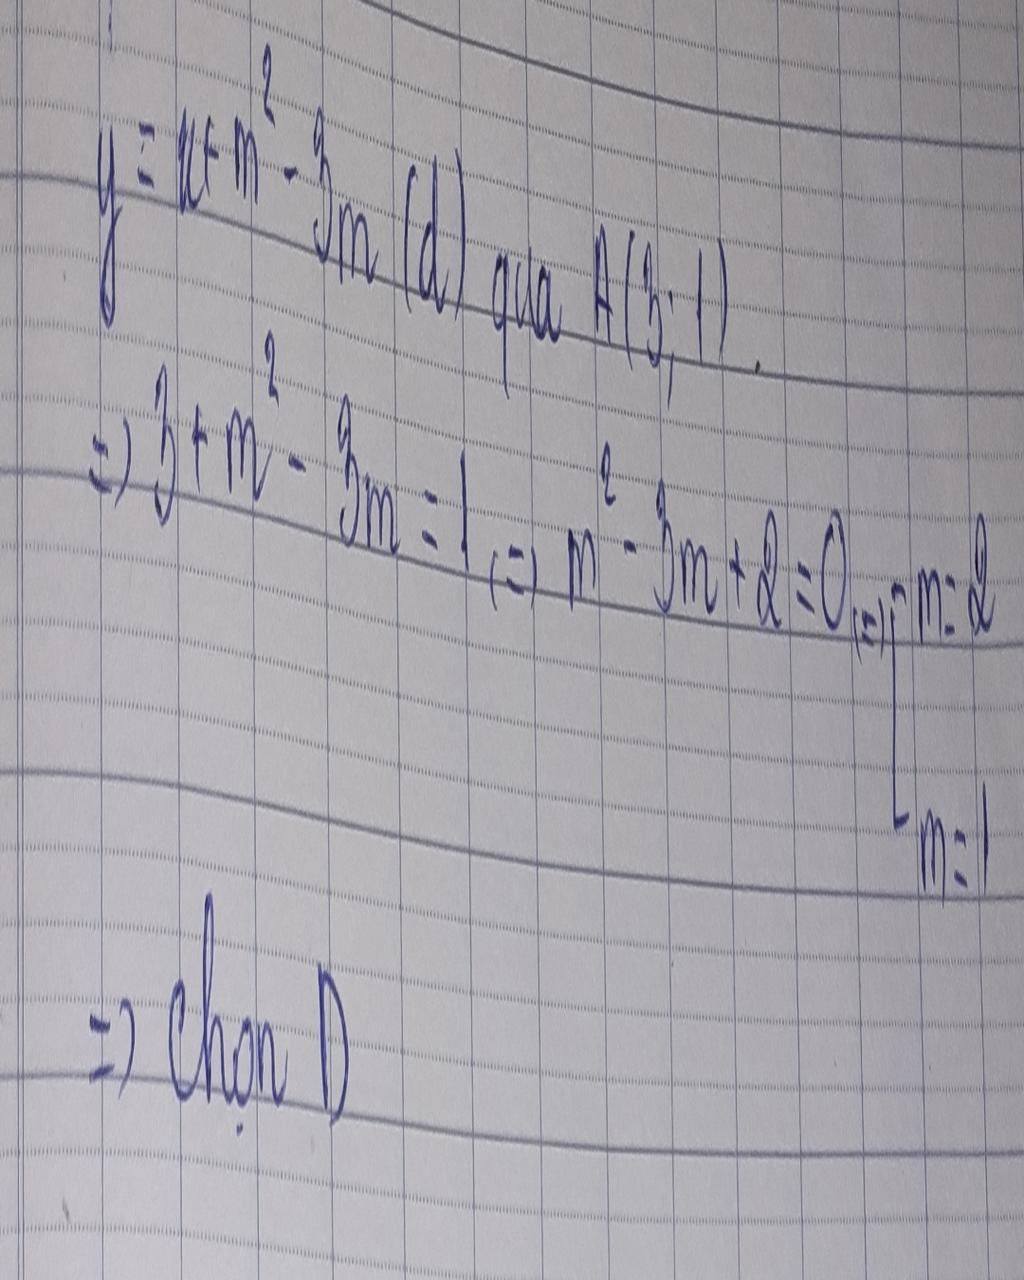 y = x + m² - 3m (d) qua A(3; 1).
=> 3 + m² - 3m = 1 <=> m² - 3m + 2 = 0 <=> [ m = 2
m = 1
=> Chọn D